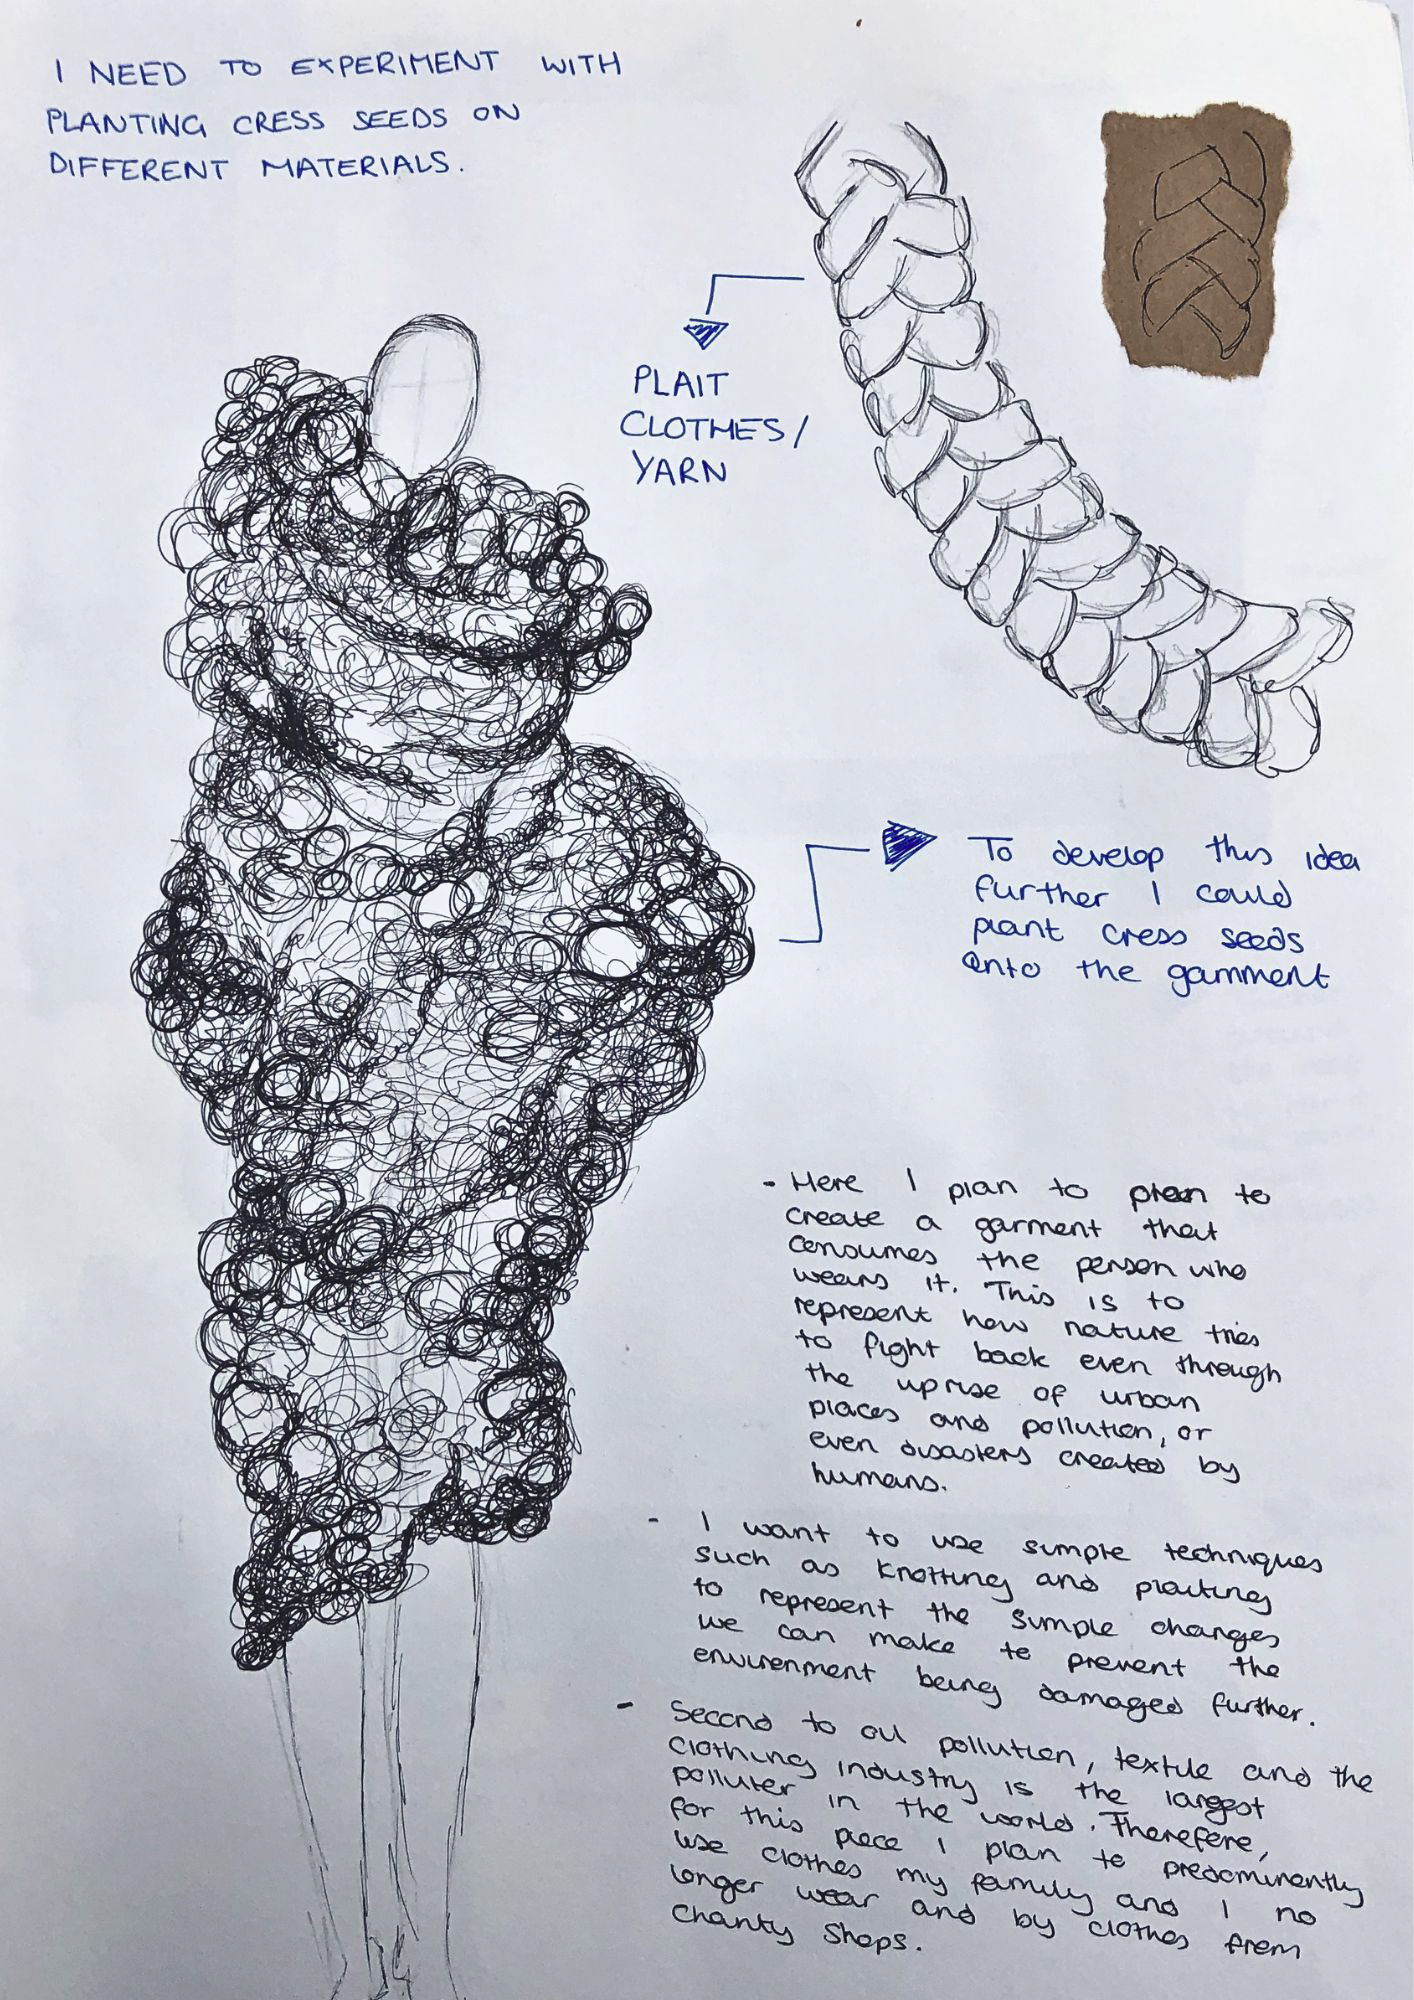 I NEED TO EXPERIMENT WITH
PLANTING CRESS SEEDS ON
DIFFERENT MATERIALS.
PLAIT
CLOTHES/
YARN
To develop this idea
further I could
plant cress seeds
onto the garment
- Here I plan to plan to
create a garment that
consumes the person who
wears it. This is to
represent how nature tries
to fight back even through
the uprise of urban
places and pollution, or
even disasters created by
humans.
- I want to use simple techniques
such as knotting and plaiting
to represent the simple changes
we can make to prevent the
environment being damaged further.
- Second to oil pollution, textile and the
clothing industry is the largest
polluter in the world. Therefore,
for this piece I plan to predominently
use clothes my family and I no
longer wear and by clothes from
charity shops.